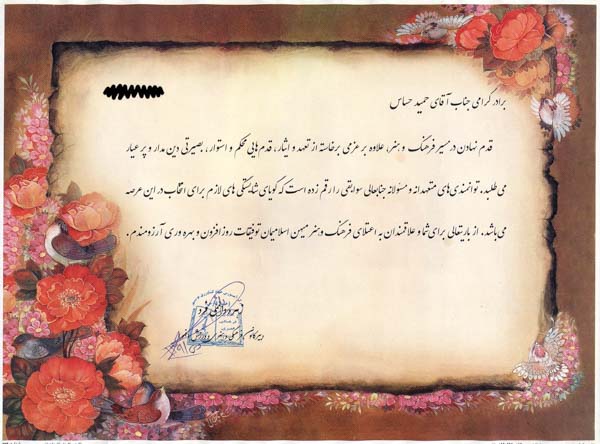 برادر گرامی جناب آقای حمید حساس
قدم نهادن در مسیر فرهنگ و هنر، علاوه بر عزمی برخاسته از تعهد و ایثار، قدم‌هایی محکم و استوار، بصیرتی دین مدار و پر عیار
می طلبد. توانمندی‌های متعهدانه و مسئولانه جنابعالی سوابقی را رقم زده است که گویای شایستگی های لازم برای انتخاب در این عرصه
می باشد. از باریتعالی برای شما و علاقمندان به اعتلای فرهنگ و هنر میهن اسلامیمان توفیقات روز افزون و بهره وری آرزومندم.